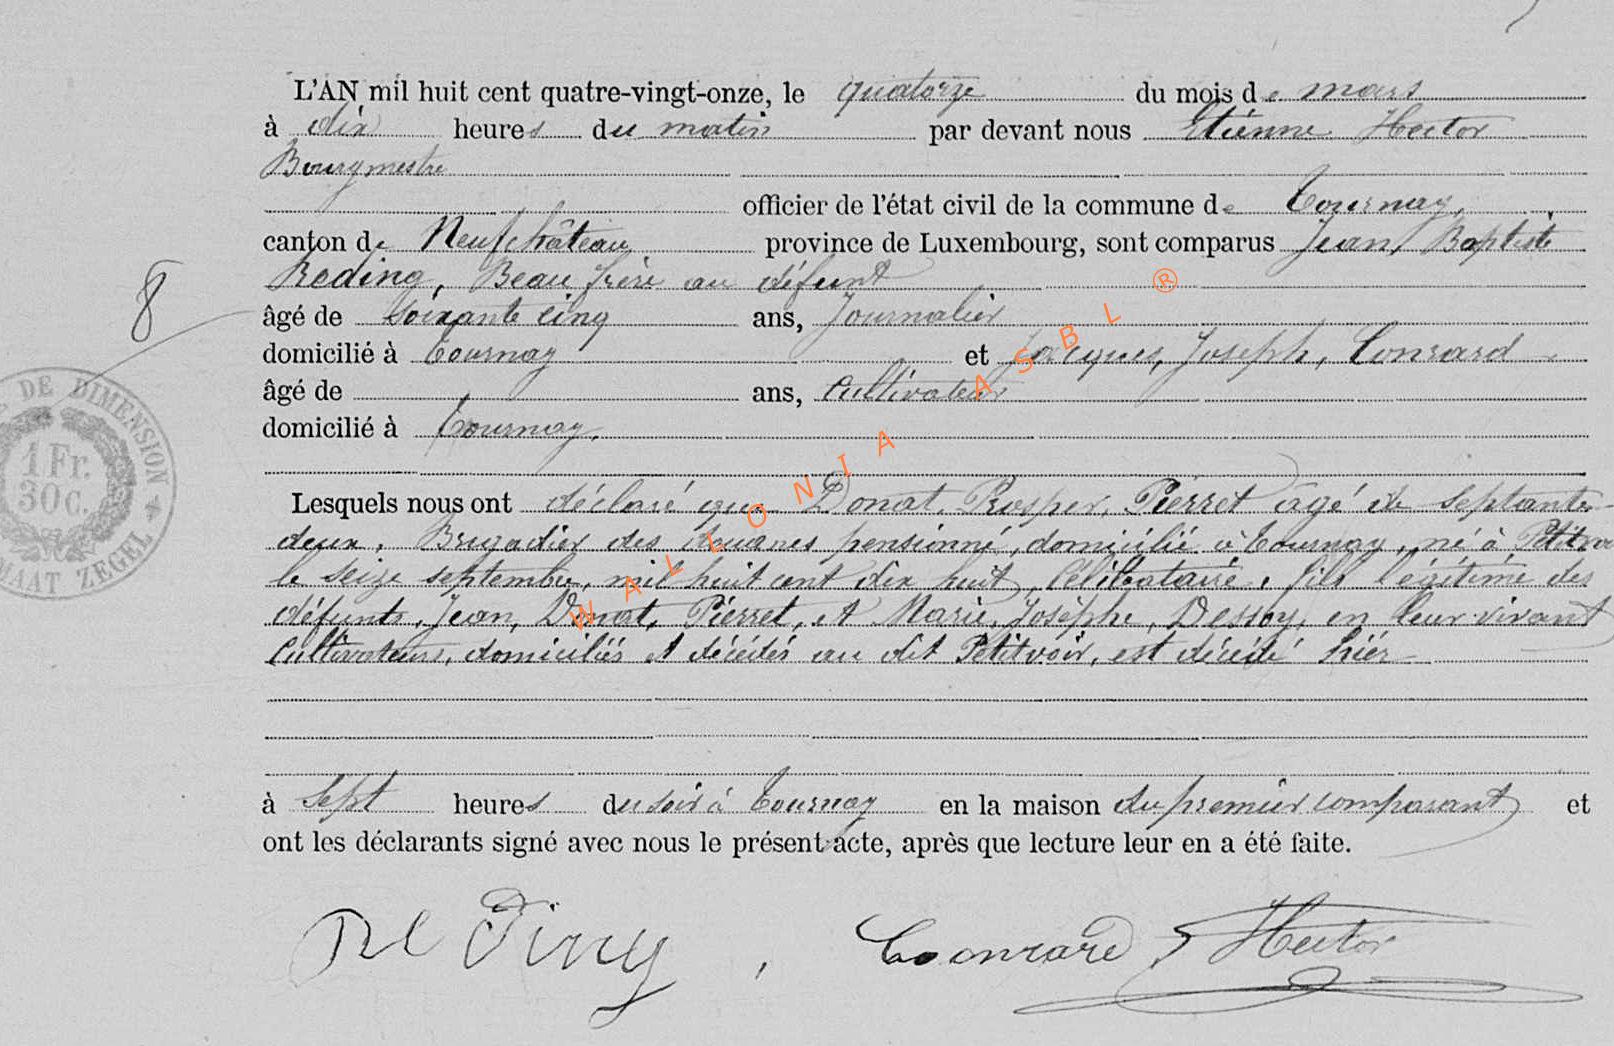 L'AN mil huit cent quatre-vingt-onze, le quatorze du mois de mars
à dix heures du matin par devant nous Etienne Hector
Bourgmestre
officier de l'état civil de la commune de Tournay,
canton de Neufchâteau province de Luxembourg, sont comparus Jean, Baptiste
Reding, Beau frère au défunt
âgé de soixante cinq ans, Journalier
domicilié à Tournay et Jacques, Joseph, Conrard
âgé de ans, Cultivateur
domicilié à Tournay.
8
DE DIMENSION
1 Fr.
30 C.
MAAT ZEGEL
Lesquels nous ont déclaré que Donat, Prosper, Pierret âgé de septante
deux, Brigadier des douanes pensionné, domicilié à Tournay, né à Petitvoir
le seize septembre, mil huit cent dix huit, Célibataire, fils légitime des
défunts, Jean, Donat, Pierret, et Marie, Josèphe, Dessoy, en leur vivant
Cultivateurs, domiciliés et décédés au dit Petitvoir, est décédé hier
à sept heures du soir à Tournay en la maison du premier comparant et
ont les déclarants signé avec nous le présent acte, après que lecture leur en a été faite.
Re Ding, Coonrard Hector
WALLONIA ASBL ®